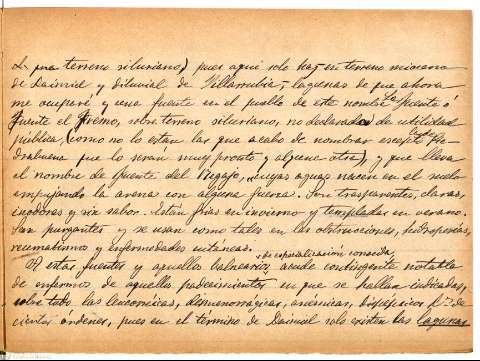 terreno siluriano) pues aqui solo hay en terreno mioceno
de Daimiel y diluvial de Villarrubia, lagunas de que ahora
me ocuparé y una fuente en el pueblo de este nombre La Fuente ó
Fuente el Fremo, sobre terreno siluriano, no declarada de utilidad
pública (como no lo estan las que acabo de nombrar escepto las de Pie-
drabuena que lo seran muy pronto y alguna otra) y que lleva
el nombre de fuente del cuyas aguas nacen en el suelo
empujando la arena con alguna fuerza. Son trasparentes, claras,
inodoras y sin sabor. Estan frias en invierno y templadas en verano.
Son purgantes y se usan como tales en las obstrucciones, hidropesias,
reumatismos y enfermedades cutaneas.
A estas fuentes y aquellos balnearios, de especialización conocida, acude contingente notable
de enfermos de aquellos padecimientos en que se hallan indicadas,
sobre todo las leucorréicas, dismenorrágicas, anémicas, dispépsicos de
ciertos órdenes, pues en el término de Daimiel solo existen las lagunas